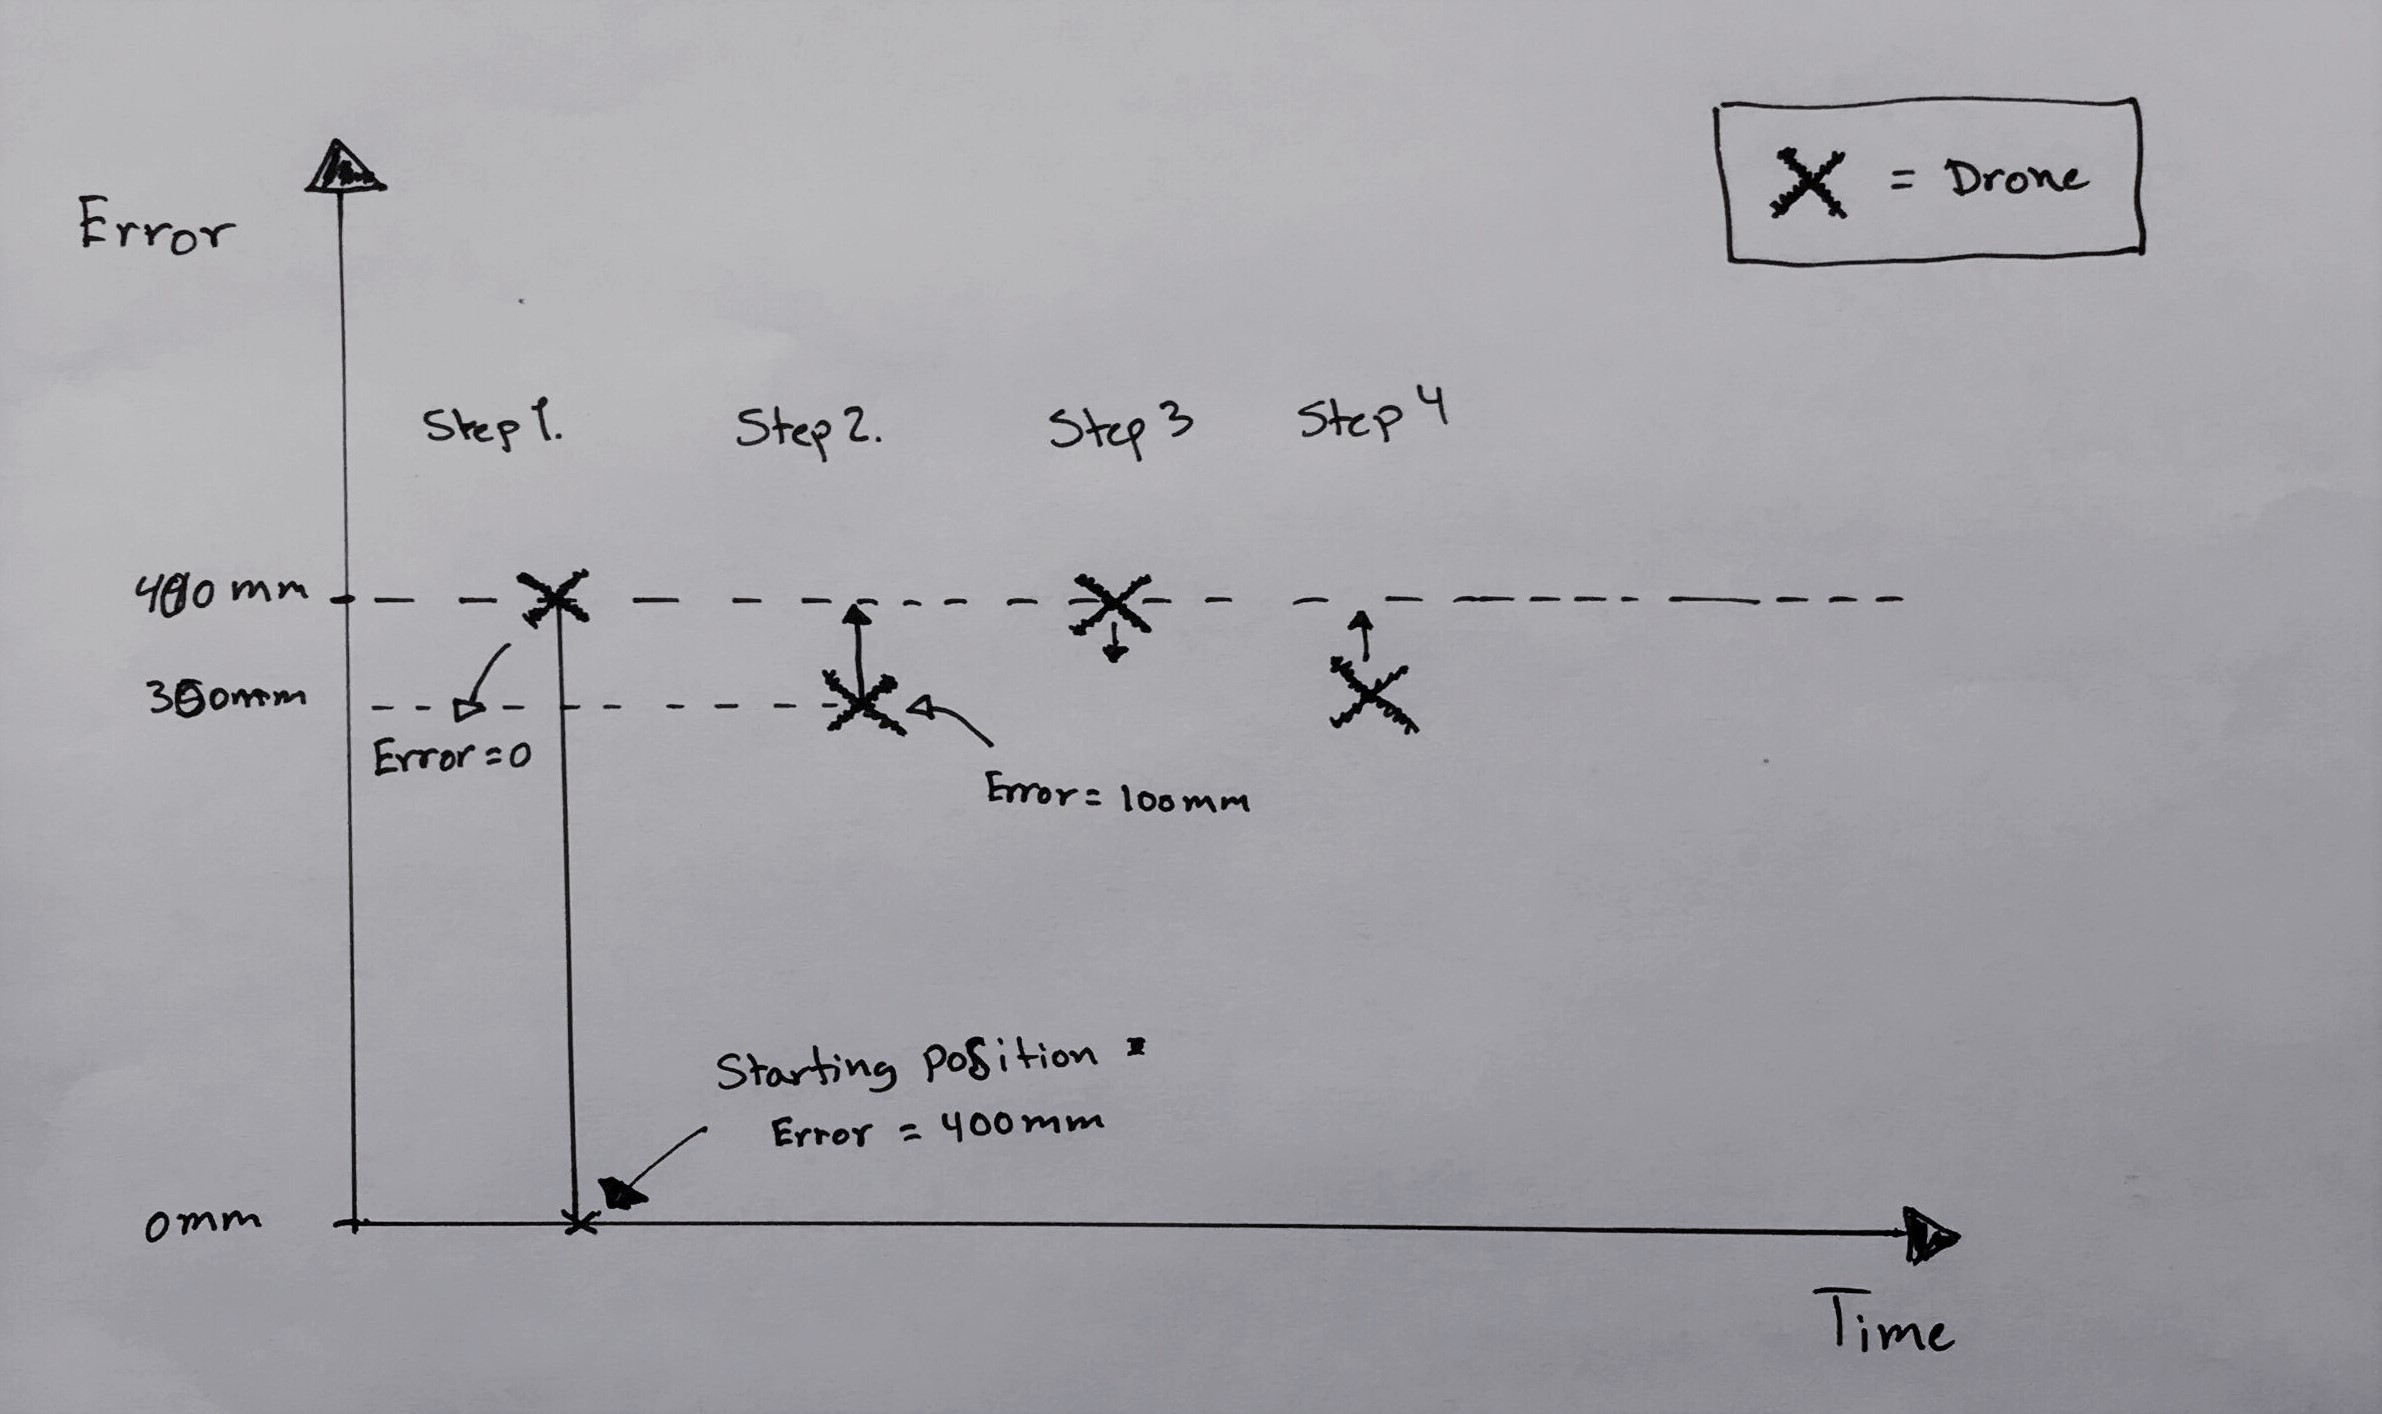 = Drone
Error
Step 1.
Step 2.
Step 3
Step 4
400 mm
300mm
Error = 0
Error = 100mm
Starting Position
Error = 400mm
0mm
Time